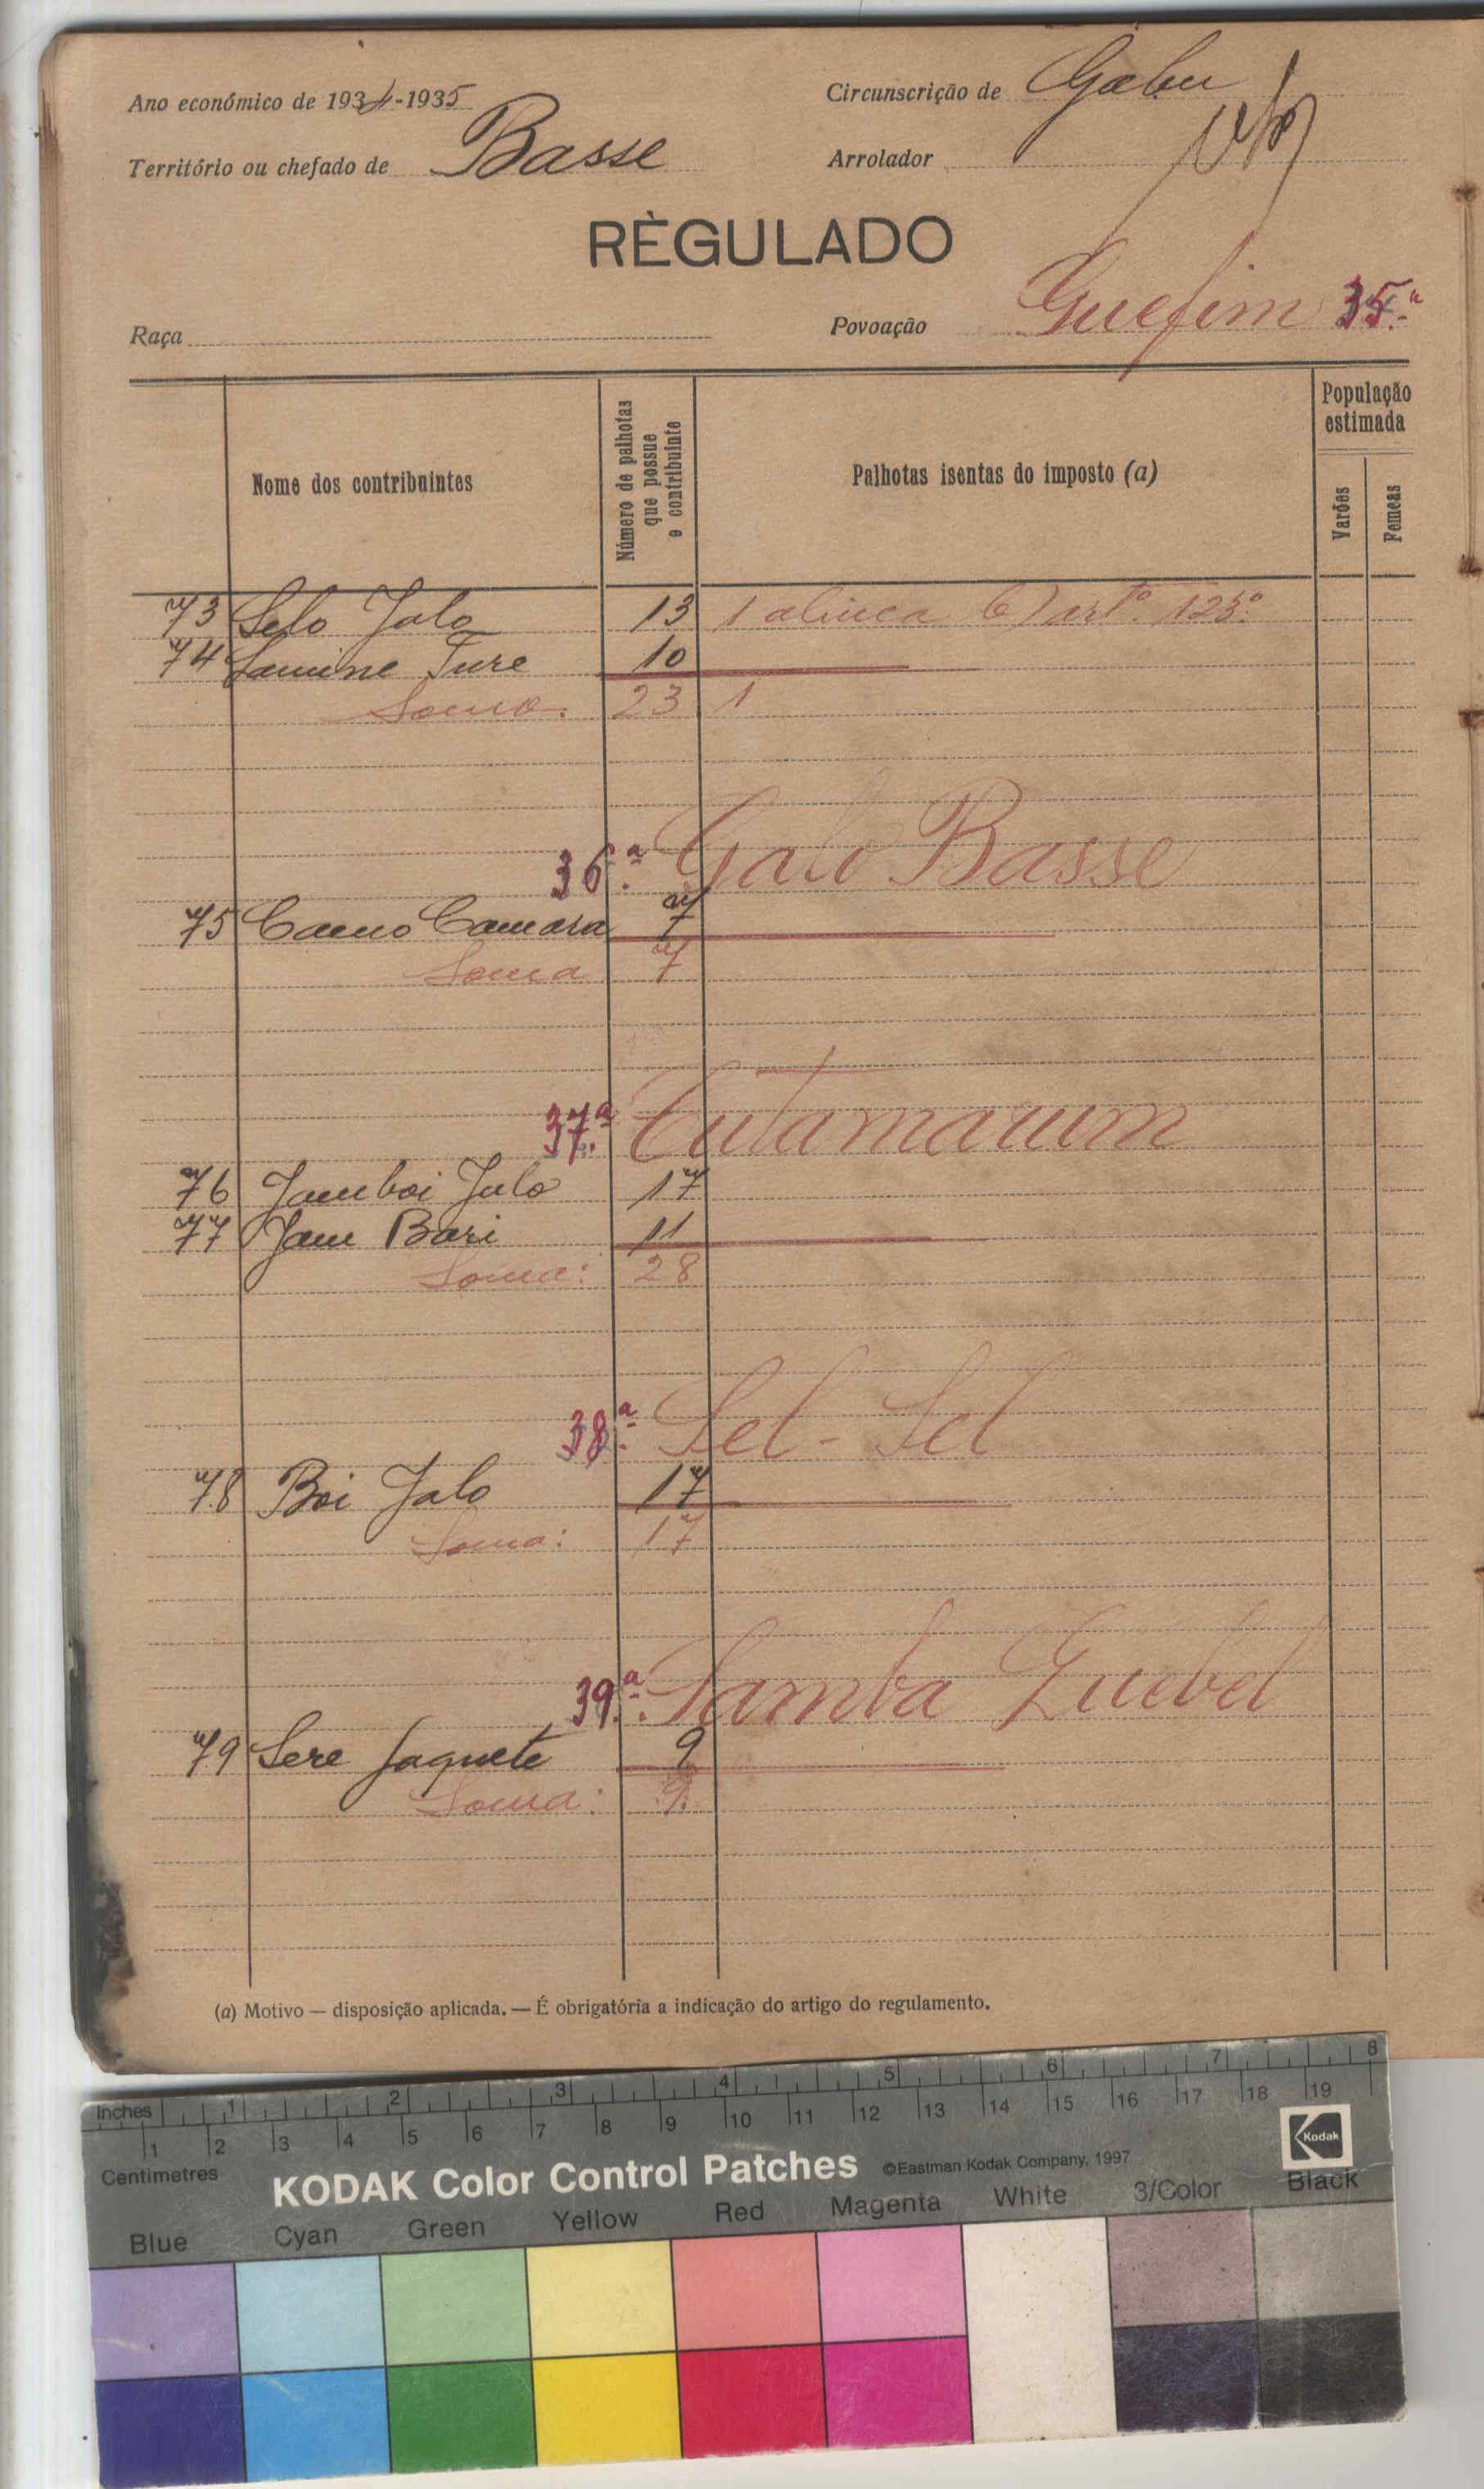 Ano económico de 1934-1935
Circunscrição de Gabu
Território ou chefado de Basse
Arrolador
RÈGULADO
Raça
Povoação Guefim 35.ª
Nome dos contribuintes
Número de palhotas que possue o contribuinte
Palhotas isentas do imposto (a)
População estimada
Varões
Femeas
73 Selo Jalo 13 1 alinea b) artº. 123º.
74 Lamine Ture 10
Soma: 23 1
36.ª Galo Basse
75 Camo Camara 7
Soma 7
37.ª Cutamaum
76 Jamboi Jalo 17
77 Jam Bari 11
Soma: 28
38.ª Sel-Sel
78 Boi Jalo 17
Soma: 17
39.ª Samba Guebel
79 Sere Jaquete 9
Soma: 9.
(a) Motivo — disposição aplicada. — É obrigatória a indicação do artigo do regulamento.
Inches 1 2 3 4 5 6 7 8
1 2 3 4 5 6 7 8 9 10 11 12 13 14 15 16 17 18 19
Centimetres
KODAK Color Control Patches ©Eastman Kodak Company, 1997
Kodak
Blue Cyan Green Yellow Red Magenta White 3/Color Black